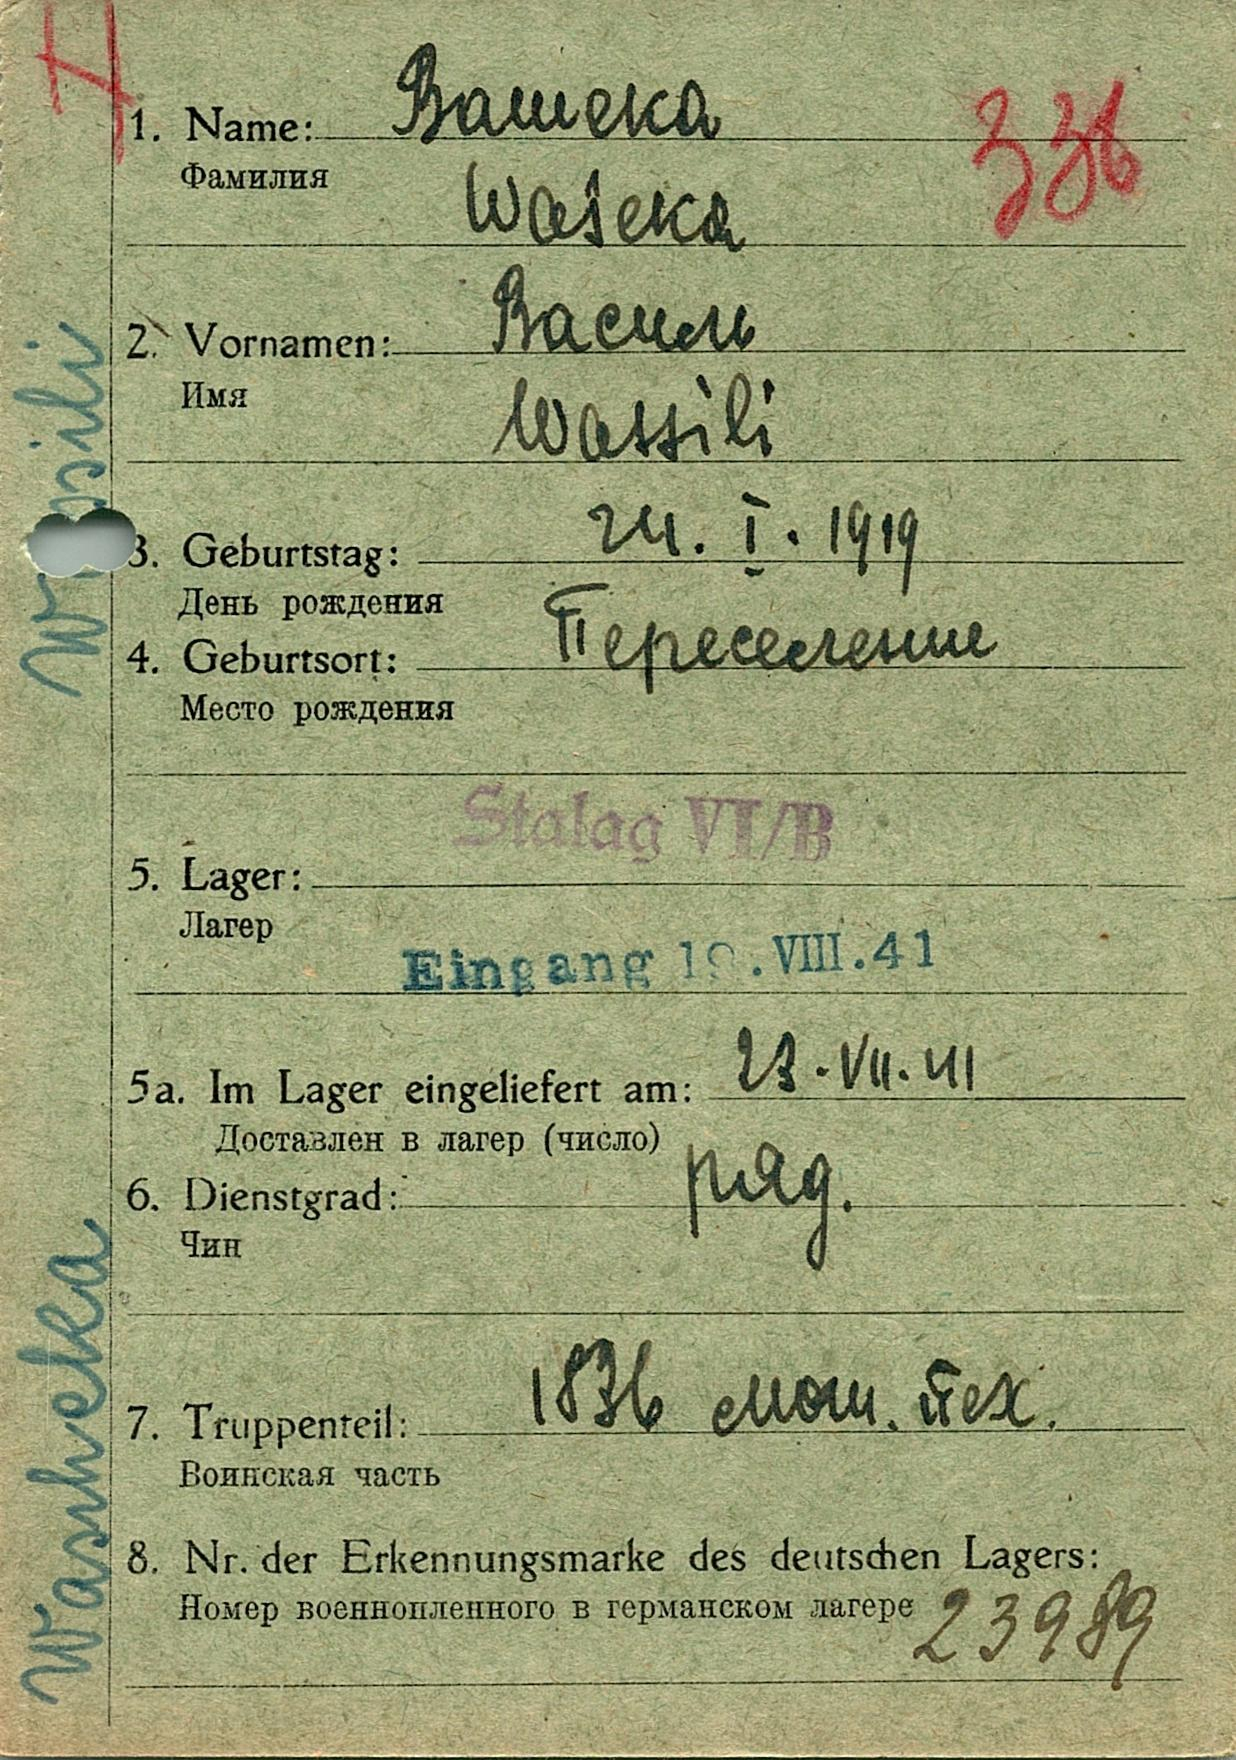 1. Name: Вашека
336
Фамилия
Wašeka
2. Vornamen: Василь
Имя
Wassili
3. Geburtstag: 24. I. 1919
День рождения
4. Geburtsort: Переселение
Место рождения
Stalag VI/B
5. Lager:
Лагер
Eingang 19.VIII.41
5a. Im Lager eingeliefert am: 23.VII.41
Доставлен в лагер (число)
6. Dienstgrad: ряд.
Чин
7. Truppenteil: 1836 мот. пех.
Воинская часть
8. Nr. der Erkennungsmarke des deutschen Lagers:
Номер военнопленного в германском лагере 23989
Washeka